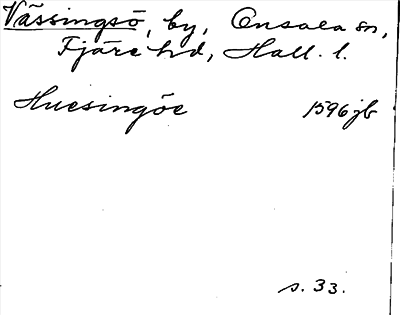 Vässingsö, by, Onsala sn,
Fjäre hd, Hall. l.
Huesingöe 1596 jb
s. 33.